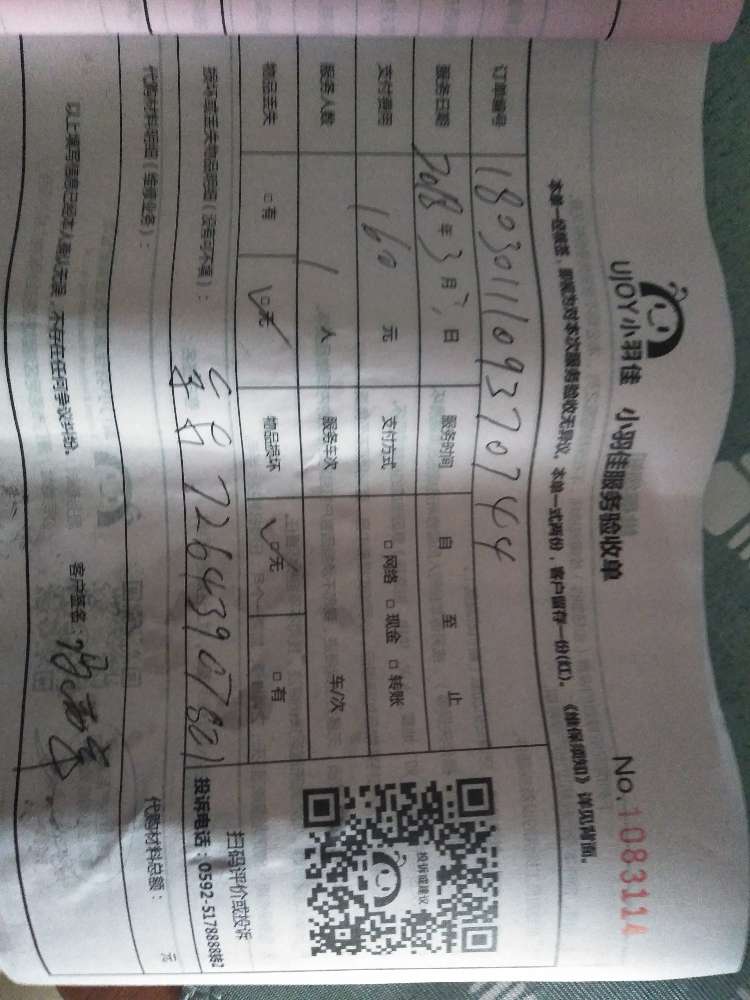 UJOY小羽佳 小羽佳服务验收单 No.1083114
本单一经签署，即视为对本次服务验收无异议，本单一式两份，客户留存一份(红)。《维保须知》详见背面。
订单编号 180301110937074４
服务日期 2018年3月 日 服务时间 自 至 止
支付费用 160元 支付方式 □网络 □现金 □转账
服务人数 1人 服务车次 车/次
物品丢失 □有 □无 物品损坏 □无 □有
投诉或建议
扫码评价或投诉
投诉电话：0592-5178888
损坏或丢失物品明细（没有可不填）：
7264390782１
代购材料明细（维修业务）： 代购材料总额： 元
以上填写信息已经本人确认无误，不存在任何争议纠纷。 客户签名：